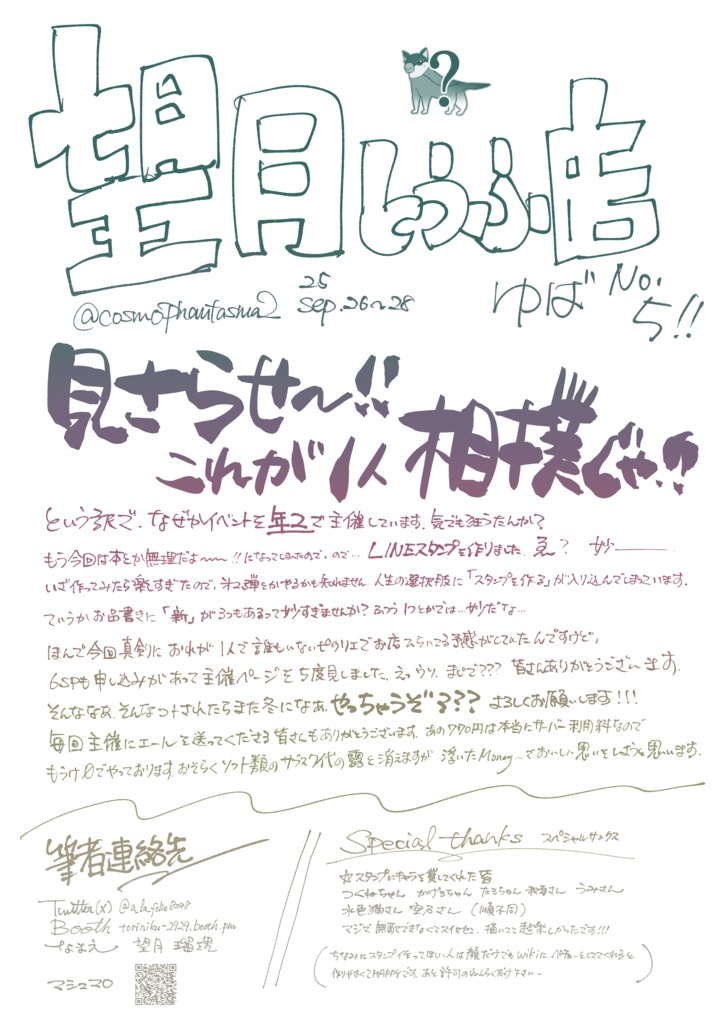 ?
望月とうふ店
@cosmophantasma2
25
Sep.26〜28
ゆば No.5!!
見さらせ〜!!
これが1人相撲じゃ!!
という訳で、なぜかイベントを年2で主催しています。気でも狂うたんか?
もう今回は本とか無理だよ〜〜!!になってしまったので、ので… LINEスタンプを作りました え? 妙———
いざ作ってみたら楽しすぎたので、第2弾とかやるかも知れません 人生の選択肢に「スタンプを作る」が入り込んでしまっています.
ていうかお品書きに「新」が3つもあるって妙すぎませんか? ふつう1つとかでは…妙だな…
ほんで今回真剣におれが1人で誰もいないピクリエでお店 予感がしてたんですけど,
6SPも申し込みがあって主催ページを5度見しました. えっウソ, まじで??? 皆さんありがとうございます.
そんななあ、そんなことされたらまた冬になあ、やっちゃうぞ??? よろしくお願いします!!!
毎回主催にエールを送ってくださる皆さんもありがとうございます. あの770円は本当にサーバー利用料なので
もうけ0でやっております. おそらくソフト類のサブスク代の露と消えますが 浮いたMoney…でおいしい思いをしようと思います.
筆者連絡先
Twitter(X)
Booth toriniku-2929.booth.pm
なまえ 望月 瑠璃
マシュマロ
Special thanks スペシャルサンクス
☆スタンプにキャラを貸してくれた皆
つくねちゃん かげろちゃん たろちゃん うみさん
水色猫さん (順不同)
マジで無断でできなくてスイマセン. 描いてて超楽しかったです!!!
(ちなみにスタンプ作ってほしい人は顔だけでもwifiに してくれると
作りやすくてHAPPYです. あと許可のれんらくだけ下さい〜)